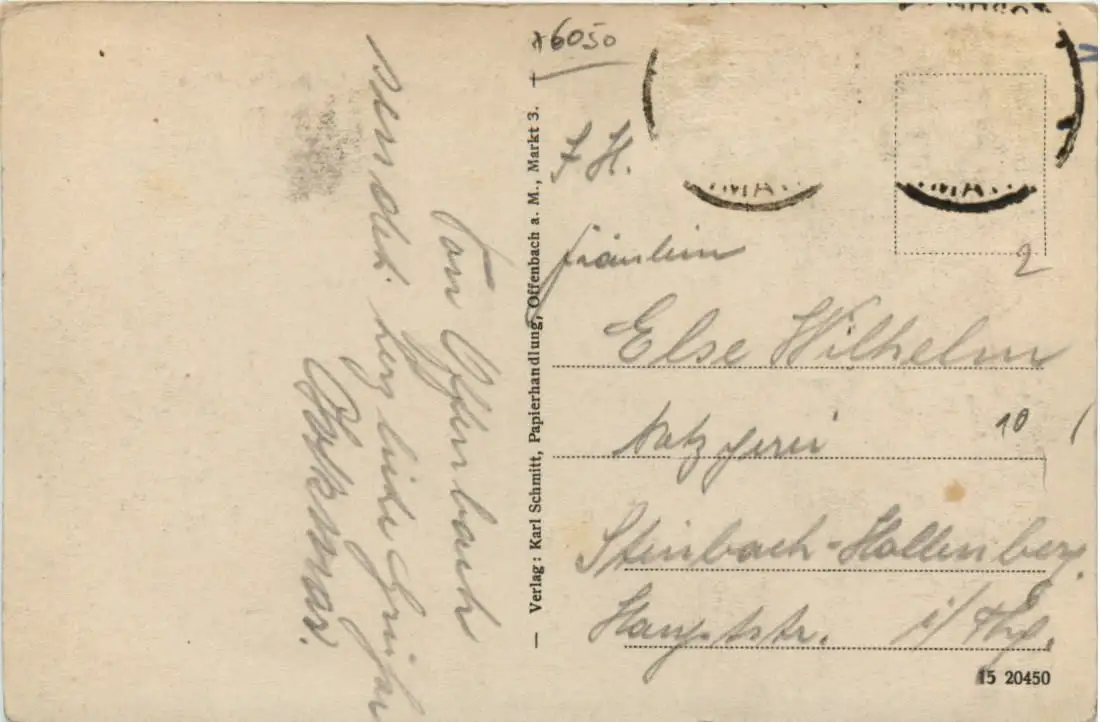 Von Offenbach
sendet herzliche Grüße
Volkmar.
x6050
— Verlag: Karl Schmitt, Papierhandlung, Offenbach a. M., Markt 3. —
Fräulein
2
Else Wilhelm
Metzgerei
10
Steinbach-Hallenberg
Hauptstr. i/Thg.
15 20450